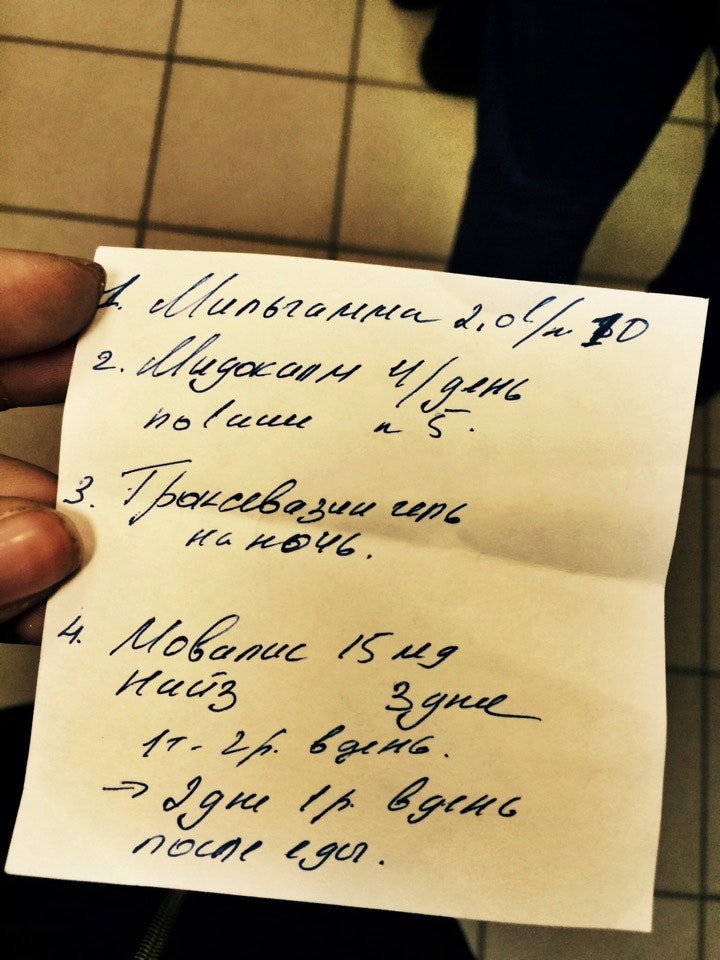 1. Мильгамма 2,0 в/м №10
2. Мидокалм 4/день
по 1 мл № 5.
3. Троксевазин гель
на ночь.
4. Мовалис 15 мg
Найз 3 дня
1т - 2 р. в день.
→ 2 дня 1 р. в день
после еды.